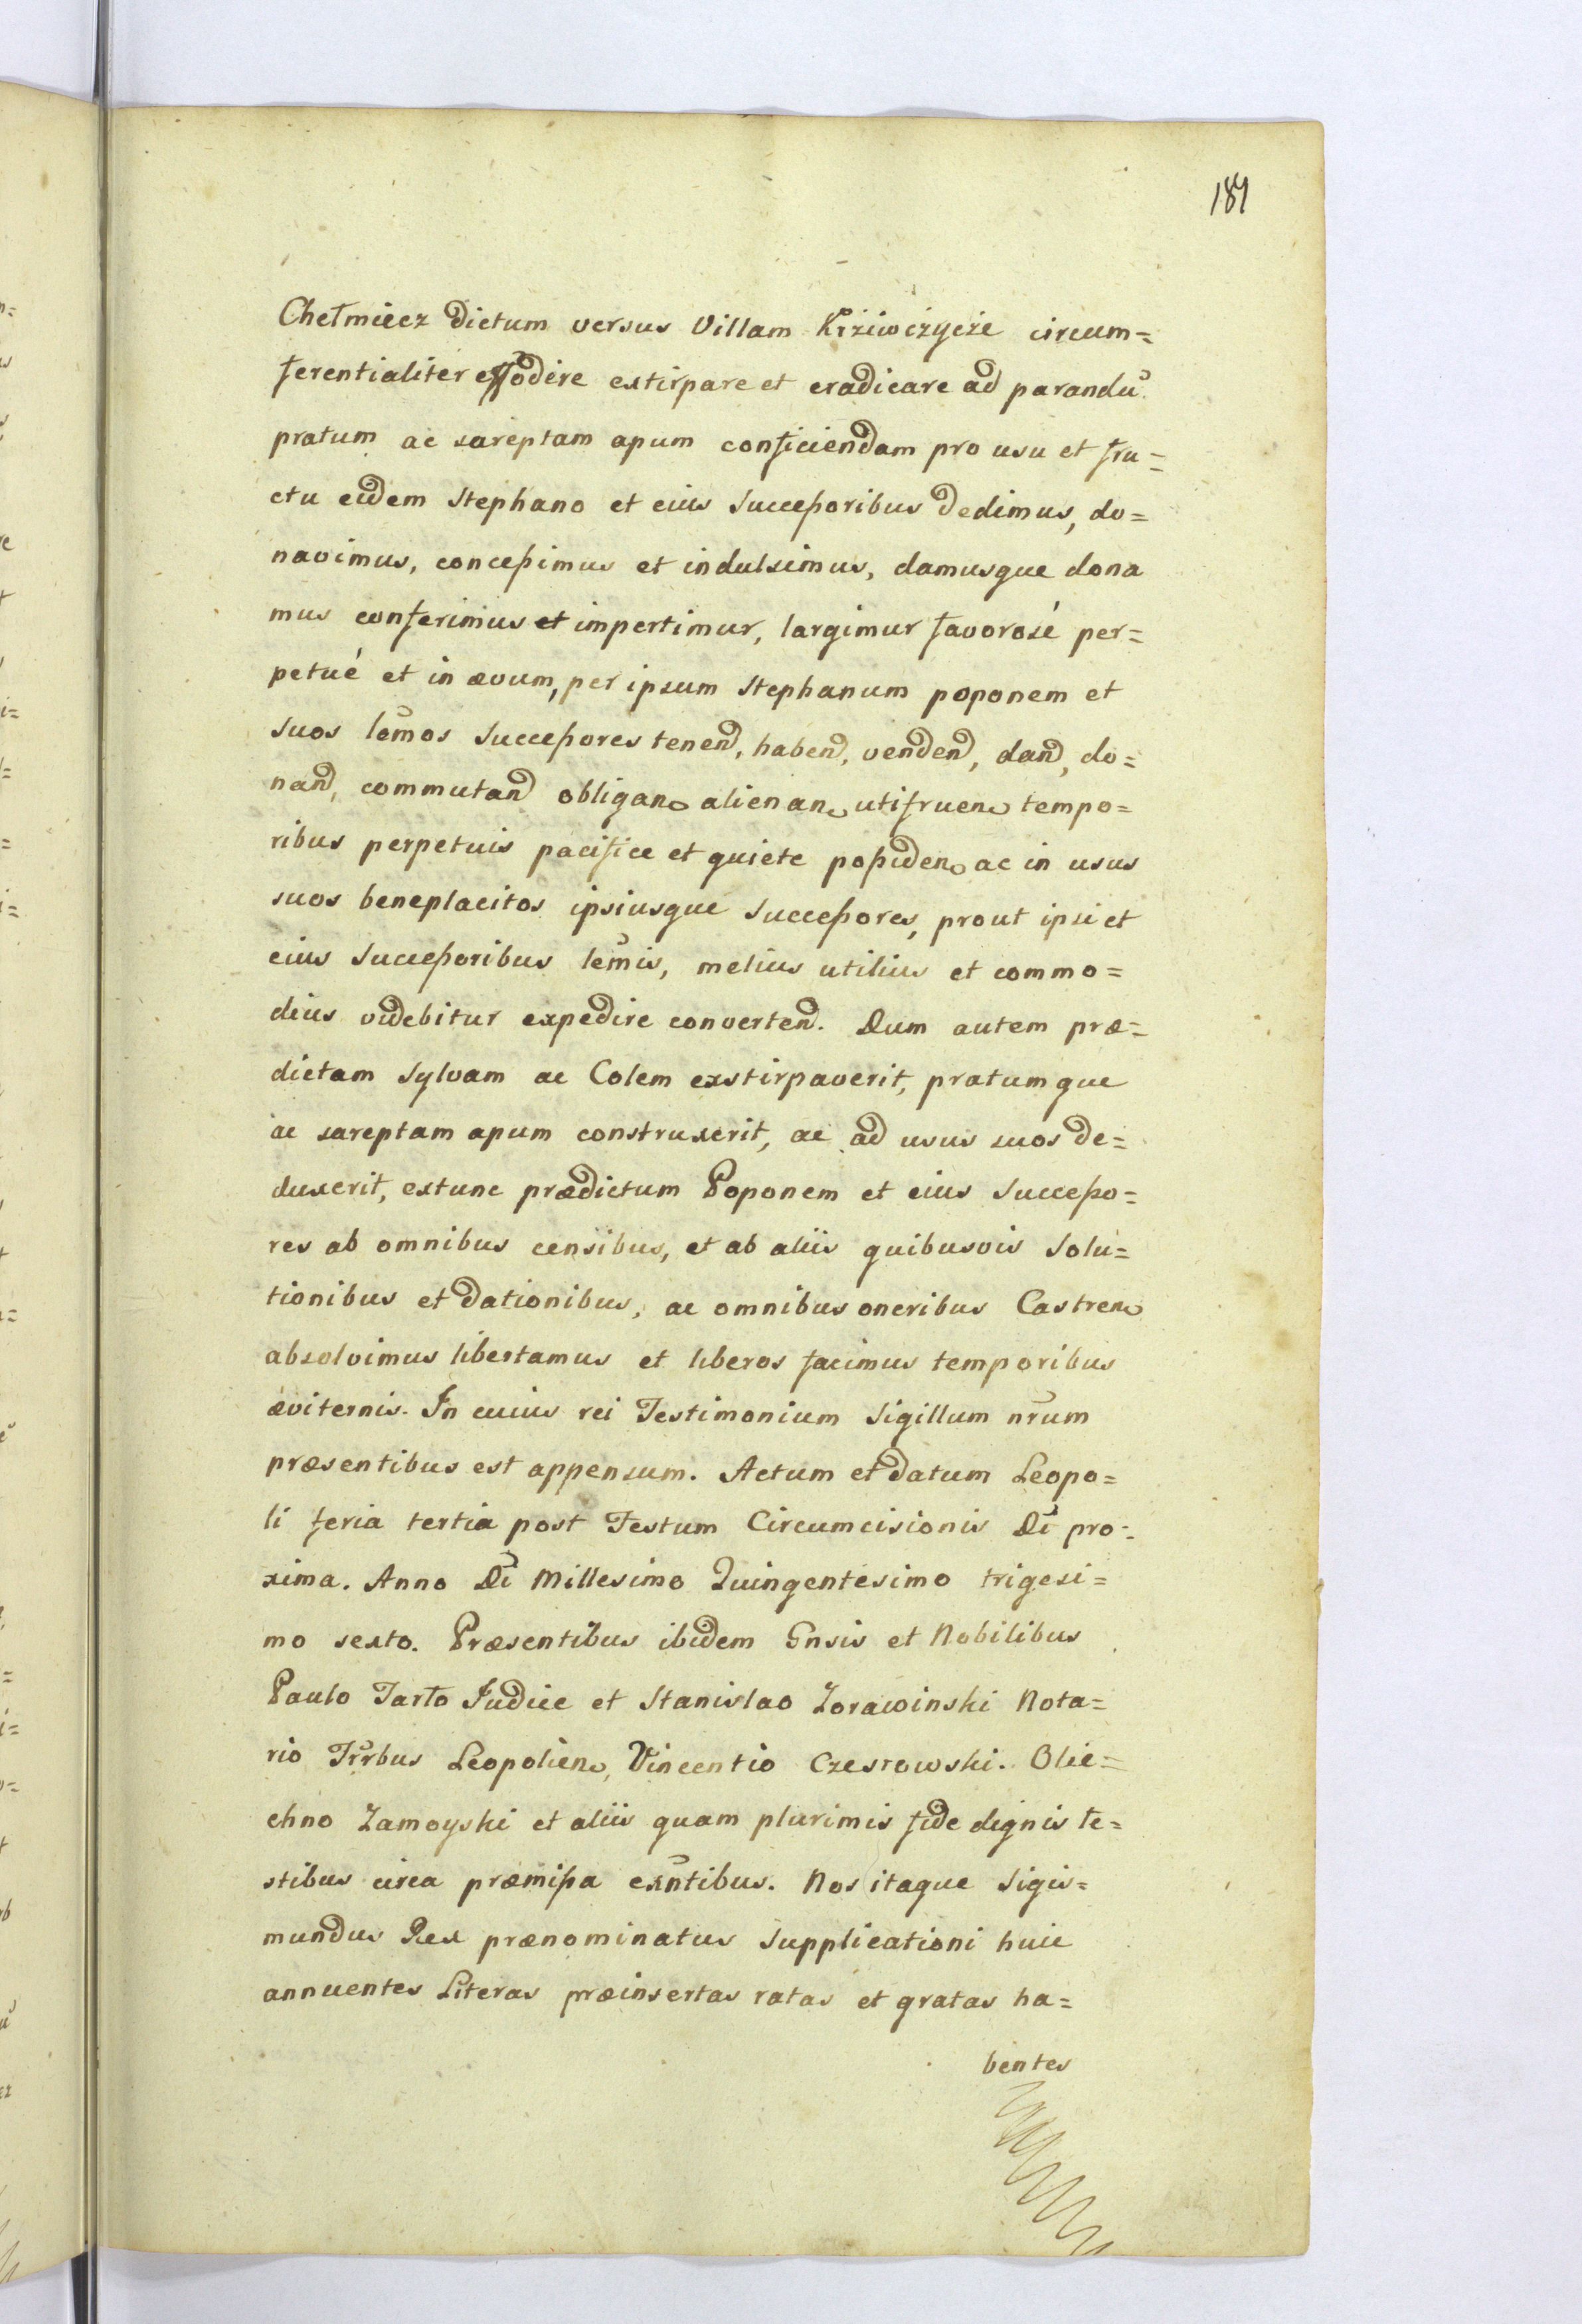 181
Chełmiecz dictum versus Villam Krziwczycze circum=
ferentialiter effodire extirpare et eradicare ad parandū
pratum ac sareptam apum conficiendam pro usu et fru=
ctu eidem Stephano et eius Successoribus dedimus, do=
navimus, concessimus et indulsimus, damusque dona
mus conferimus et impertimur, largimur favorosé per=
petué et in ævum, per ipsum Stephanum poponem et
suos lēmos Successores tenend, habend, vendend, dand, do=
nand, commutand obligand alienand utifruend tempo=
ribus perpetuis pacifice et quiete possidend ac in usus
suos beneplacitos ipsiusque Successores, prout ipsi et
eius Successoribus lēmis, melius utilius et commo=
dius videbitur expedire convertend. Dum autem præ=
dictam Sylvam ac Colem exstirpaverit, pratumque
ac sareptam apum construxerit, ac ad usus suos de=
duxerit, extunc prædictum Poponem et eius Successo=
res ab omnibus censibus, et ab aliis quibusvis Solu=
tionibus et dationibus, ac omnibus oneribus Castren
absolvimus libertamus et liberos facimus temporibus
æviternis. In cuius rei Testimonium Sigillum nr̄um
præsentibus est appensum. Actum et datum Leopo=
li feria tertia post Festum Circumcisionis Dī pro=
xima. Anno Dī Millesimo Quingentesimo trigesi=
mo sexto. Præsentibus ibidem Gnsis et Nobilibus
Paulo Tarło Judice et Stanislao Zorawinski Nota=
rio Trr̄bus Leopolien, Vincentio Czesrowski. Olie=
chno Zamoyski et aliis quam plurimis fide dignis te=
stibus circa præmissa exn̄tibus. Nos itaque Sigis=
mundus Rex prænominatus Supplicationi huic
annuentes Literas præinsertas ratas et gratas ha=
bentes